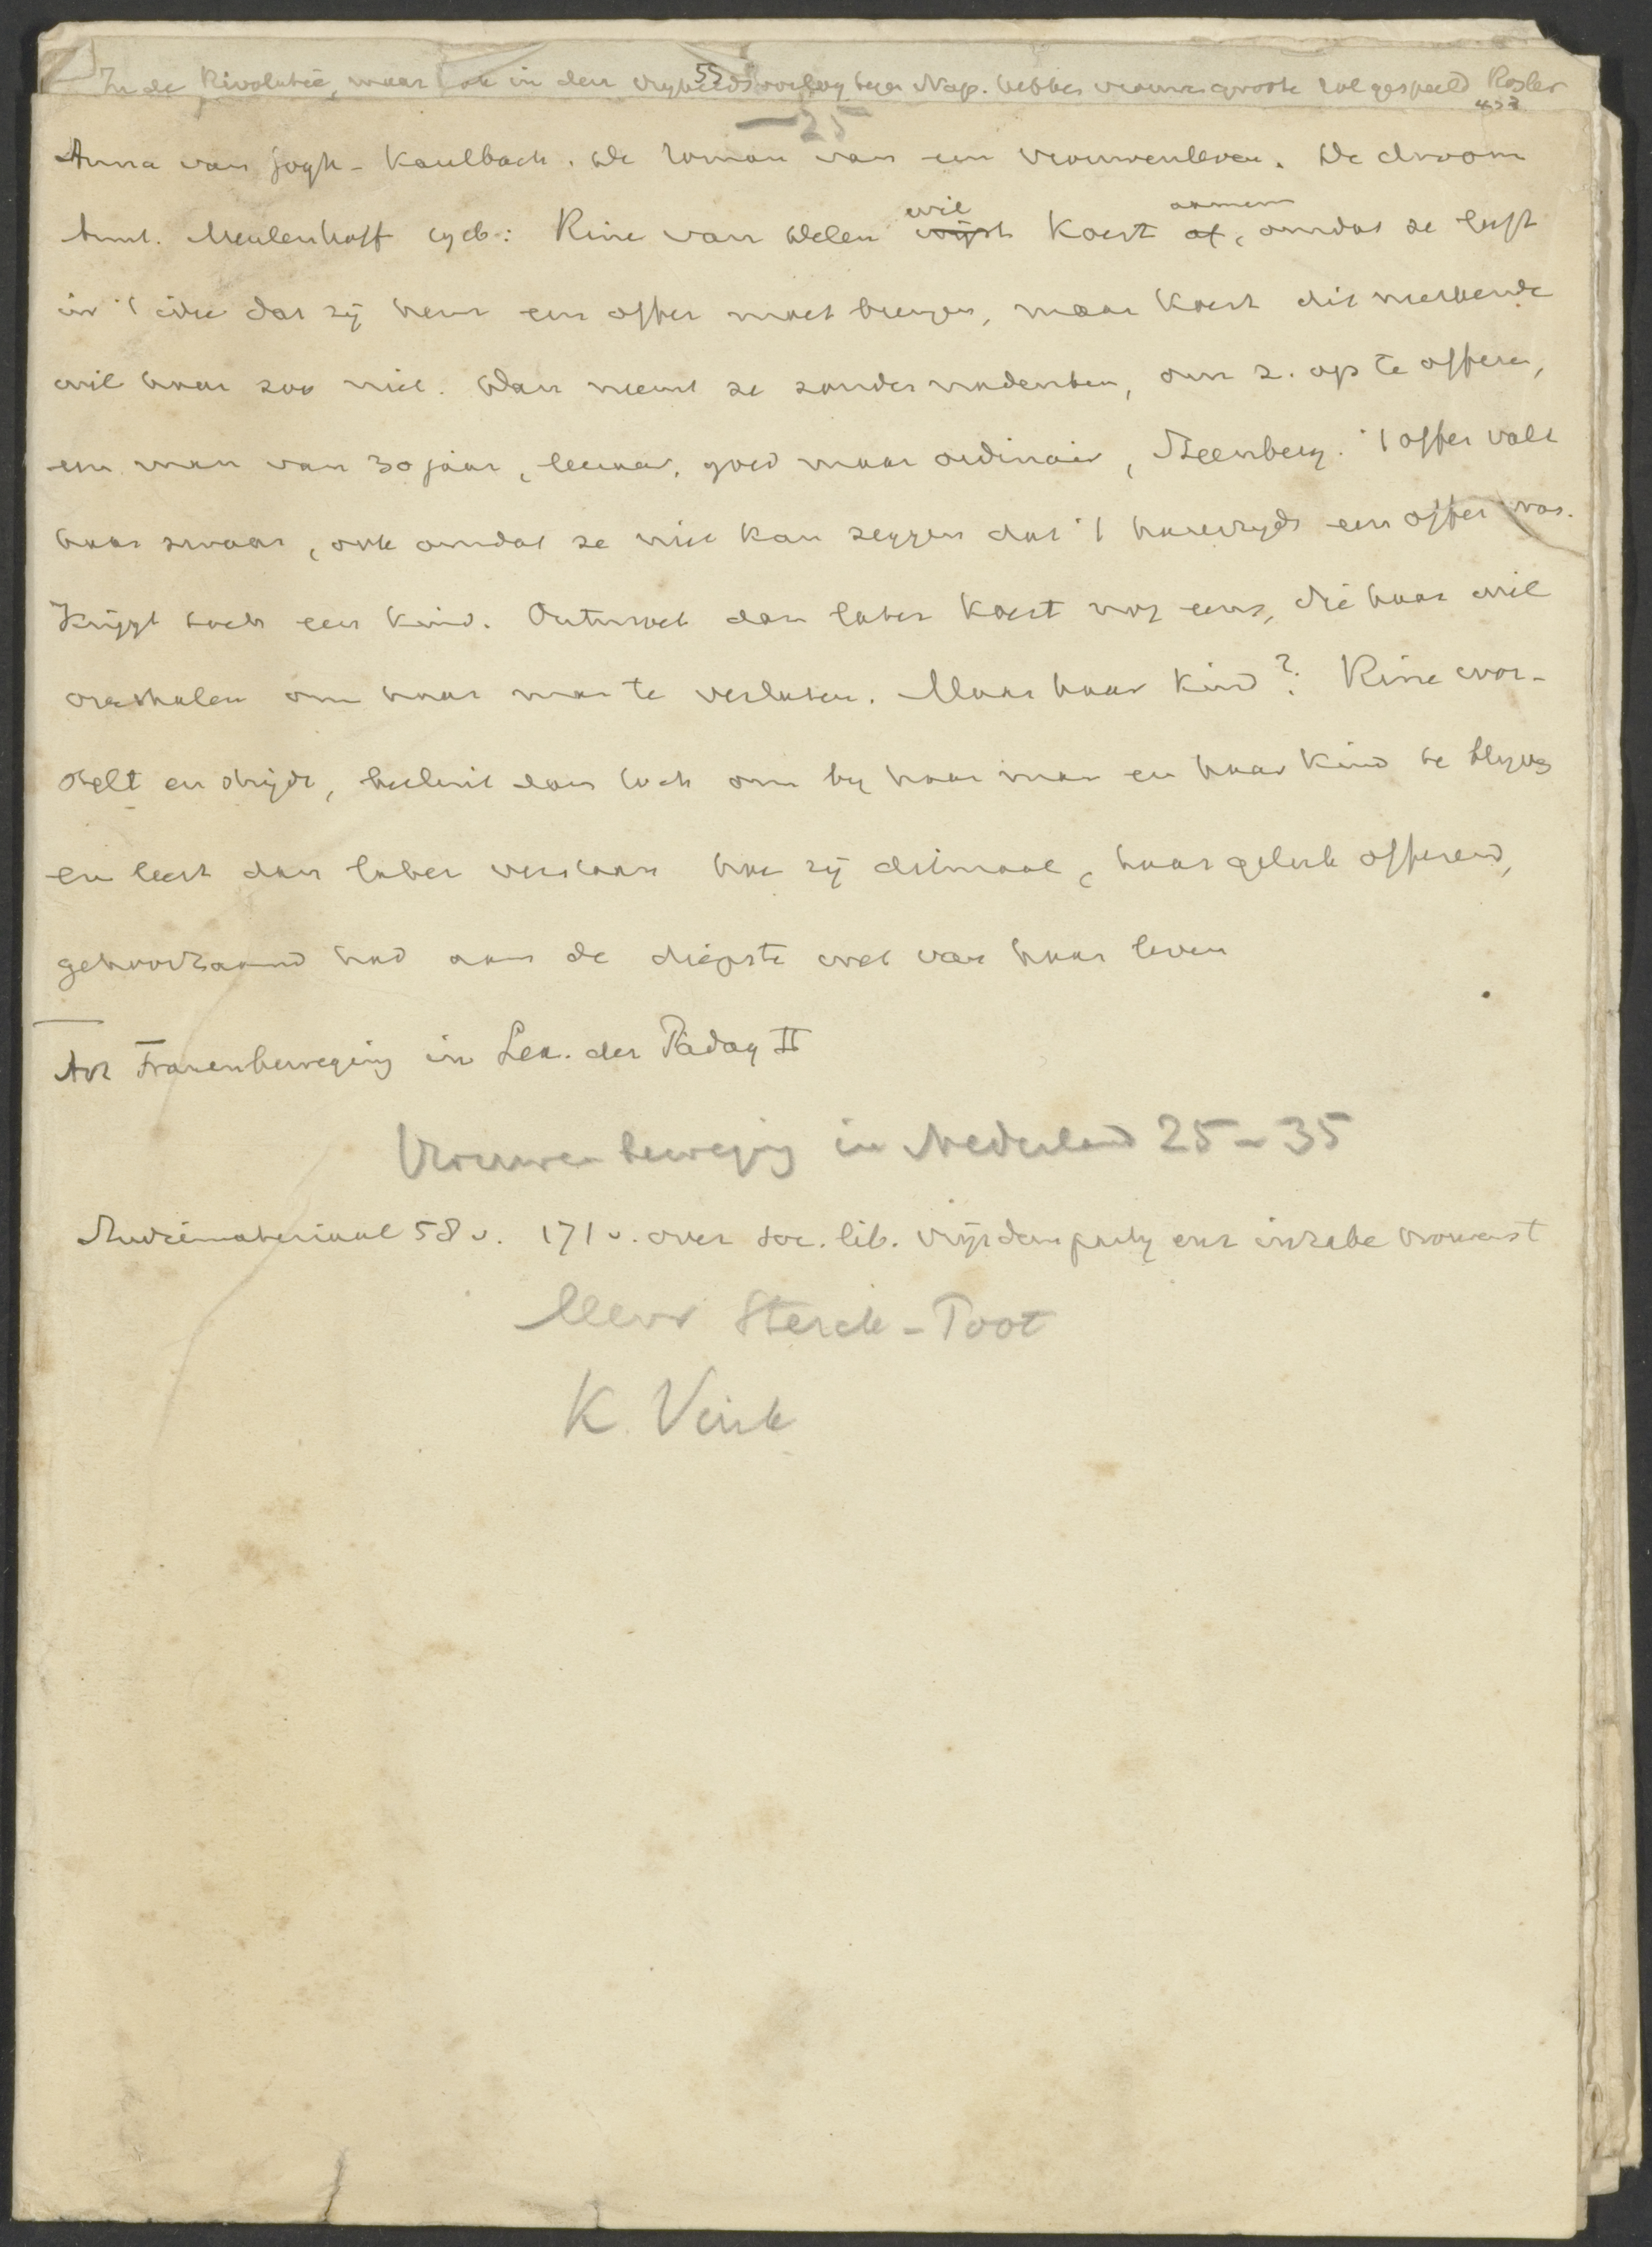 In de Revolutie, maar ook in den vryheidsoorlog tegen Nap. hebben vrouwen groote rol gespeeld Rosler
55
453
25
Anna van Gogh-Kaulbach. De roman van een vrouwenleven. De droom
Amst. Meulenhoff cycl: Rine van Delen wijst wil Koert af, aannemen omdat ze leeft
in 't idee dat zij hem een offer moet brengen, maar Koert dit merkende
wil haar zoo niet. Dan neemt ze zonder nadenken, om z. op te offeren,
een man van 30 jaar, leeraar, goed maar ordinair, Steenberg. 't offer valt
haar zwaar, ook omdat ze niet kan zeggen dat 't harerzyds een offer was.
Krijgt toch een kind. Ontmoet dan later Koert nog eens, die haar wil
overhalen om haar man te verlaten. Maar haar kind? Rine wor-
stelt en strijdt, besluit dan toch om by haar man en haar kind te blyven
en leert dan later verstaan hoe zij ditmaal, haar geluk offerend,
gehoorzaamd had aan de diepste wet van haar leven
Art Frauenbewegung in Lex. der Pädag II
Vrouwenbeweging in Nederland 25-35
Studiemateriaal 58 v. 171 v. over soc. lib. vrijz dem party enz inzake vrouwenst
Mevr Sterck-Proot
K. Vink